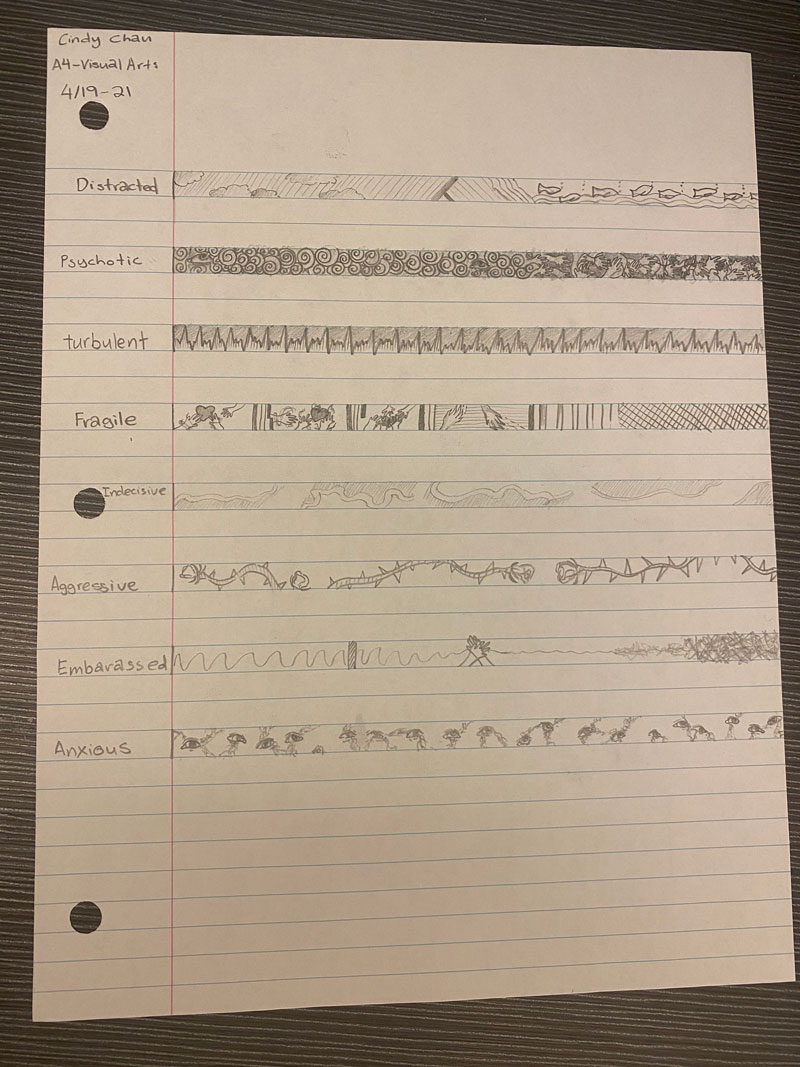 Cindy Chan
A4-Visual Arts
4/19-21
Distracted
Psychotic
turbulent
Fragile
Indecisive
Aggressive
Embarassed
Anxious